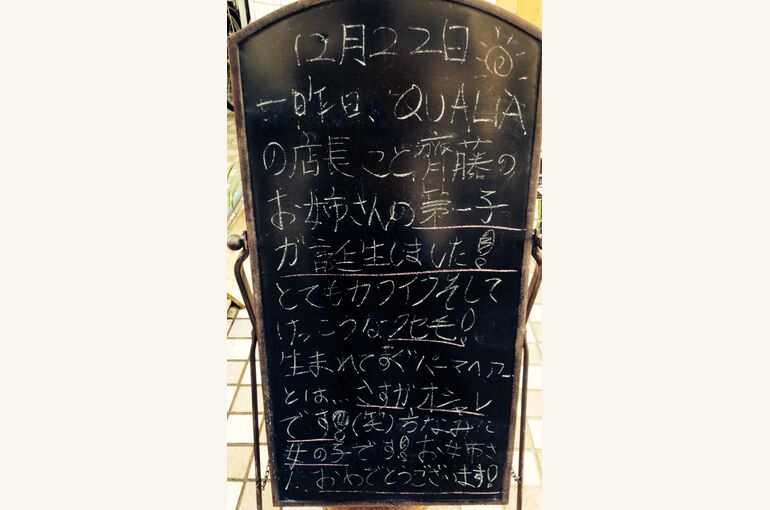 12月22日
一昨日、QUALIA
の店長こと齊藤の
お姉さんの第一子
が誕生しました!
とてもカワイクそして
けっこうなクセ毛!
生まれてすぐパーマヘアー
とは…さすがオシャレ
です!(笑)ちなみに
女の子です!お姉さ
んおめでとうございます!